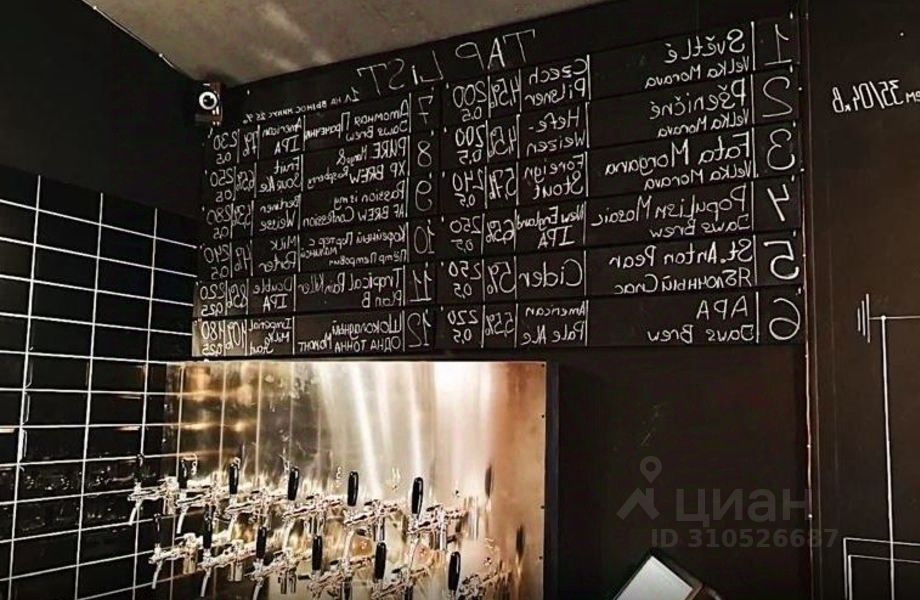 TAP LIST
1
Světlé
Velka Morava
Czech Pilsner
4,5%
200
0,5
2
Pšeničné
Velka Morava
Hefe-Weizen
200
0,5
3
Fata Morgana
Velka Morava
Foreign Stout
240
0,5
4
Populism Mosaic
Jaws Brew
New England IPA
6,5%
250
0,5
5
St. Anton Pear
Яблочный Спас
Cider
5%
250
0,5
6
APA
Jaws Brew
American Pale Ale
5,5%
220
0,5
7
Атомная Прачечная
Jaws Brew
American IPA
230
0,5
8
PURE
XP BREW Raspberry
Fruit Sour Ale
250
0,5
9
Passion is my
AF BREW Confession
Berliner Weisse
280
10
Кофейный Портер с малиной
Пётр Петрович
Milk Porter
240
0,5
11
Tropical Rain Killer
Plan B
Double IPA
220
0,25
12
Шоколадный Момент
Одна Тонна
Imperial Milk Stout
10%
180
0,25
35/04 кВ
циан
ID 310526687